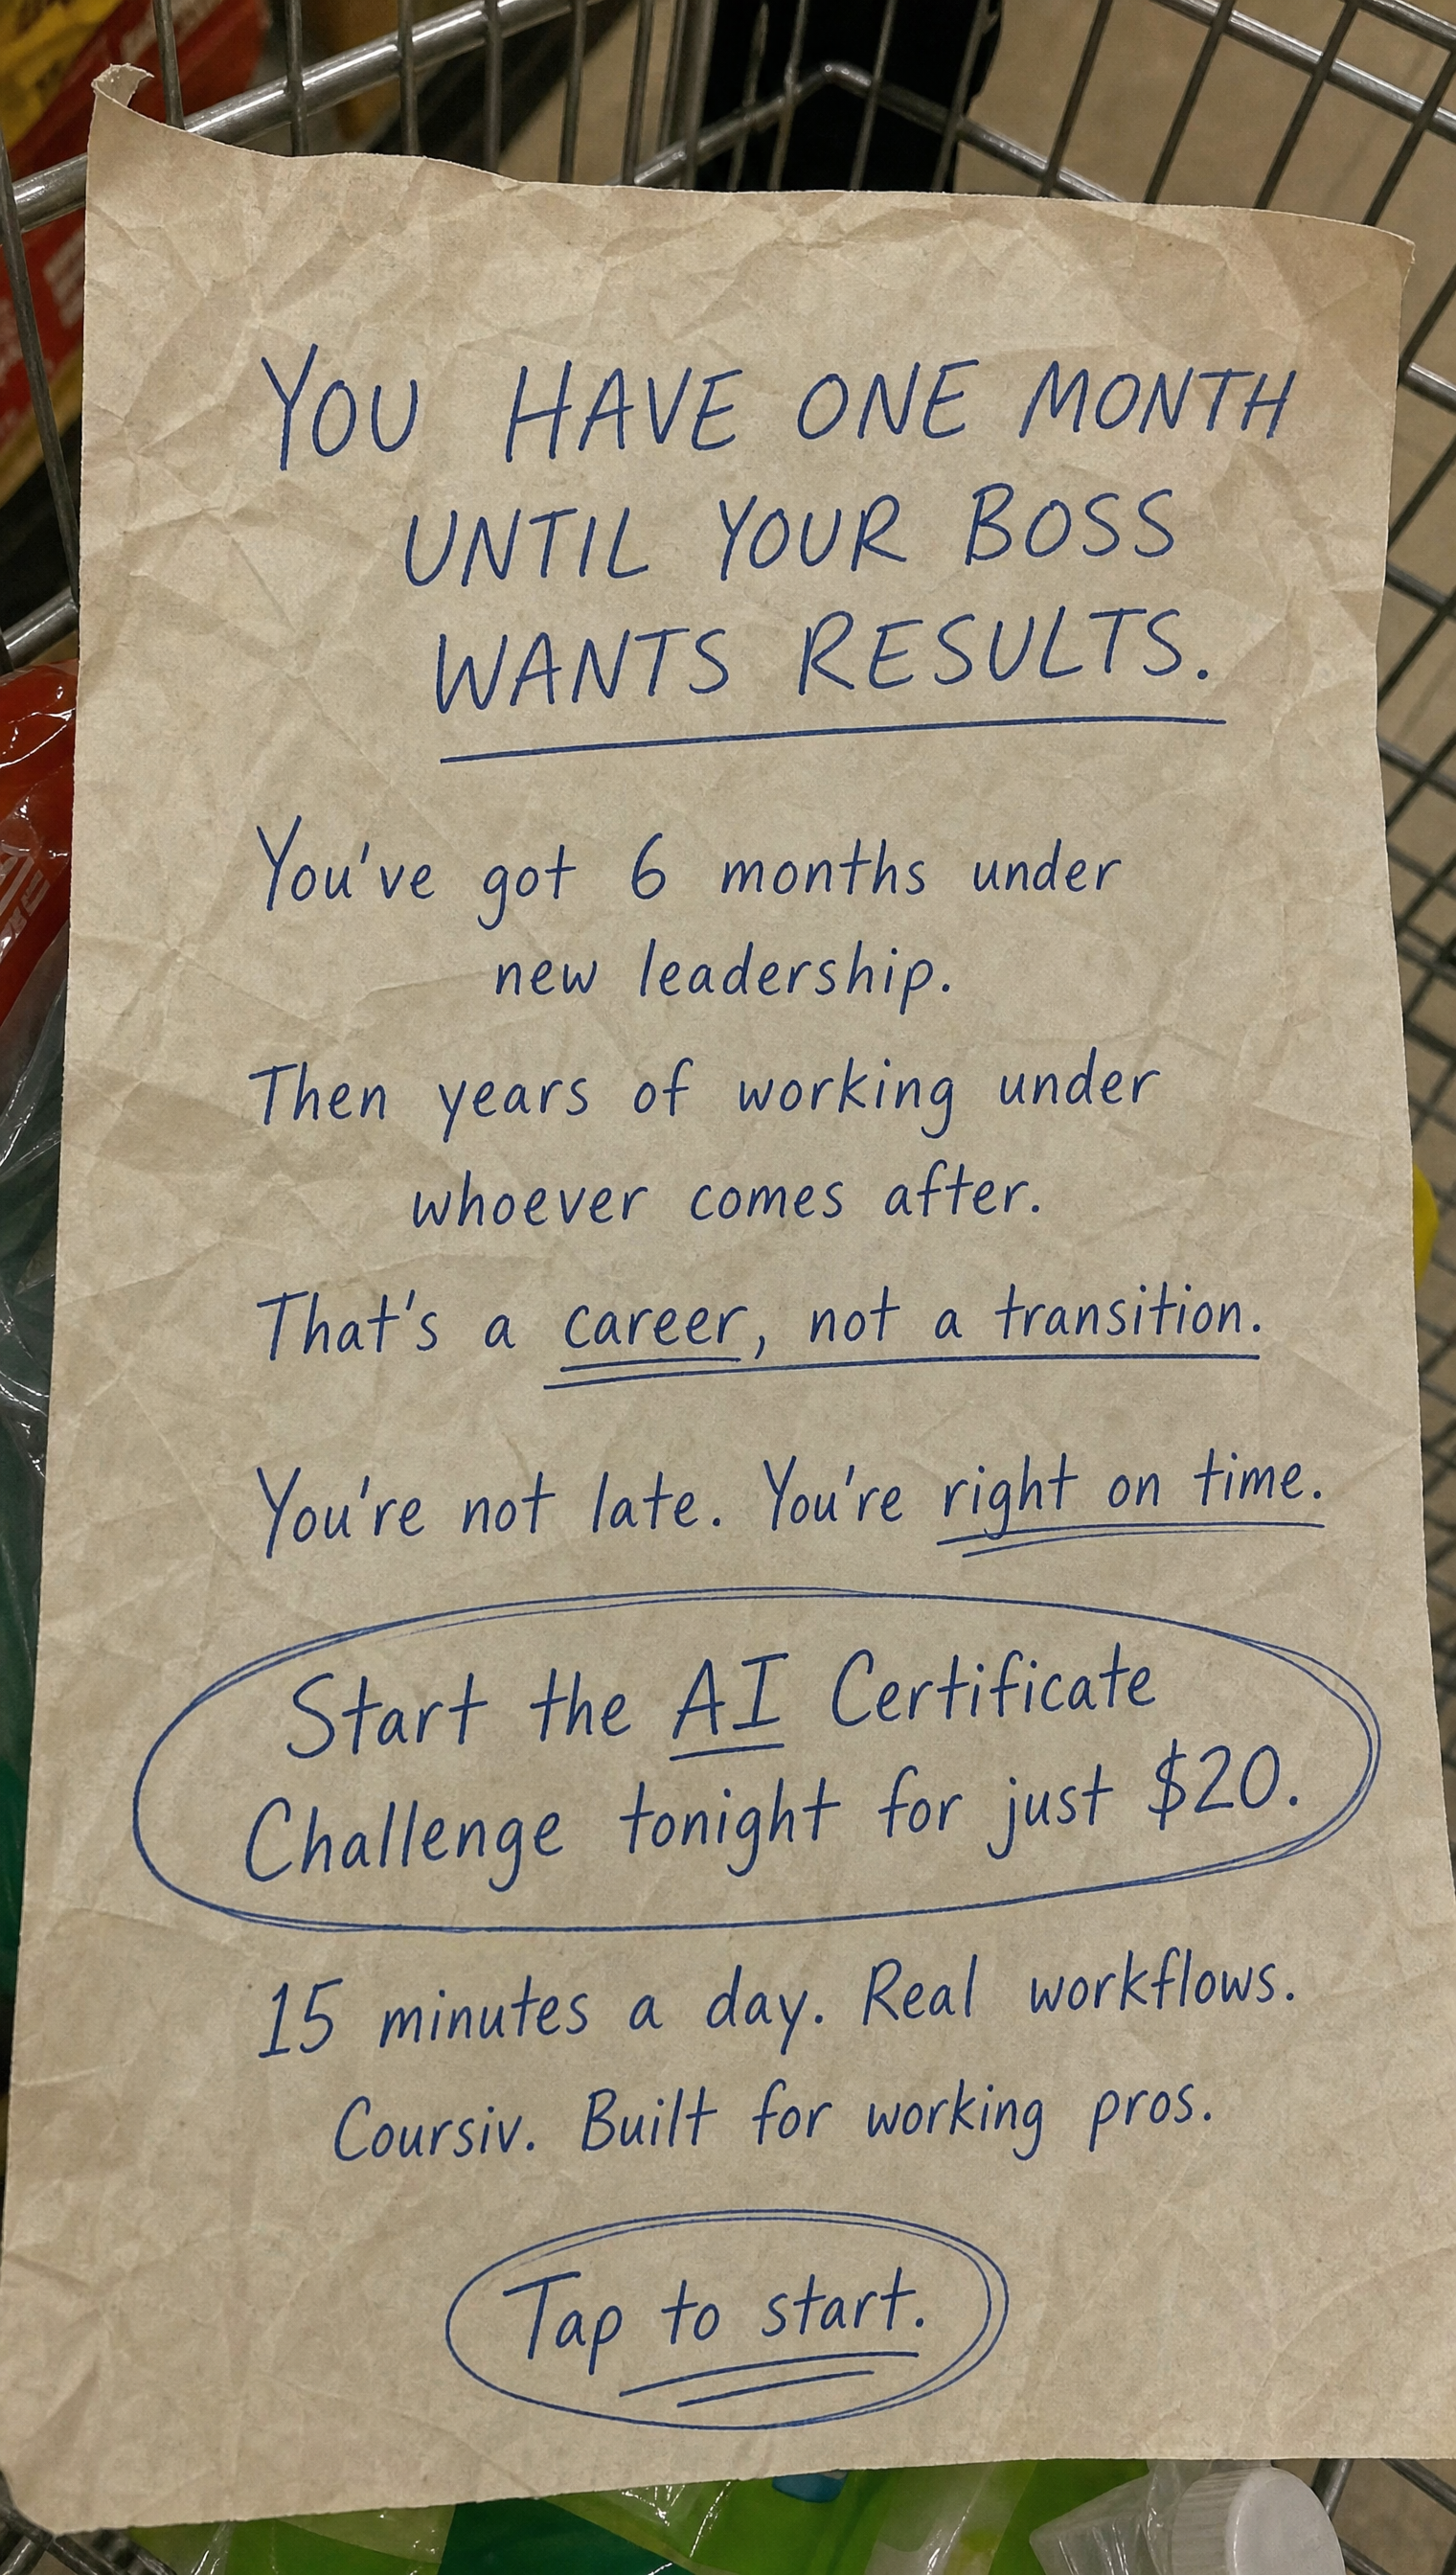 YOU HAVE ONE MONTH
UNTIL YOUR BOSS
WANTS RESULTS.
You've got 6 months under
new leadership.
Then years of working under
whoever comes after.
That's a career, not a transition.
You're not late. You're right on time.
Start the AI Certificate
Challenge tonight for just $20.
15 minutes a day. Real workflows.
Coursiv. Built for working pros.
Tap to start.